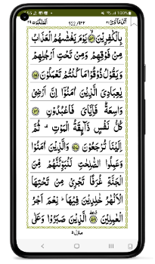 بِالْكٰفِرِيْنَ يَوْمَ يَغْشٰىهُمُ الْعَذَابُ
مِنْ فَوْقِهِمْ وَمِنْ تَحْتِ اَرْجُلِهِمْ
وَيَقُوْلُ ذُوْقُوْا مَا كُنْتُمْ تَعْمَلُوْنَ
يٰعِبَادِيَ الَّذِيْنَ اٰمَنُوْۤا اِنَّ اَرْضِيْ
وَاسِعَةٌ فَاِيَّايَ فَاعْبُدُوْنِ
كُلُّ نَفْسٍ ذَآئِقَةُ الْمَوْتِ ثُمَّ
اِلَيْنَا تُرْجَعُوْنَ وَالَّذِيْنَ اٰمَنُوْا
وَعَمِلُوا الصّٰلِحٰتِ لَنُبَوِّئَنَّهُمْ مِّنَ
الْجَنَّةِ غُرَفًا تَجْرِيْ مِنْ تَحْتِهَا
الْاَنْهٰرُ خٰلِدِيْنَ فِيْهَا نِعْمَ اَجْرُ
الْعٰمِلِيْنَ الَّذِيْنَ صَبَرُوْا وَعَلٰى